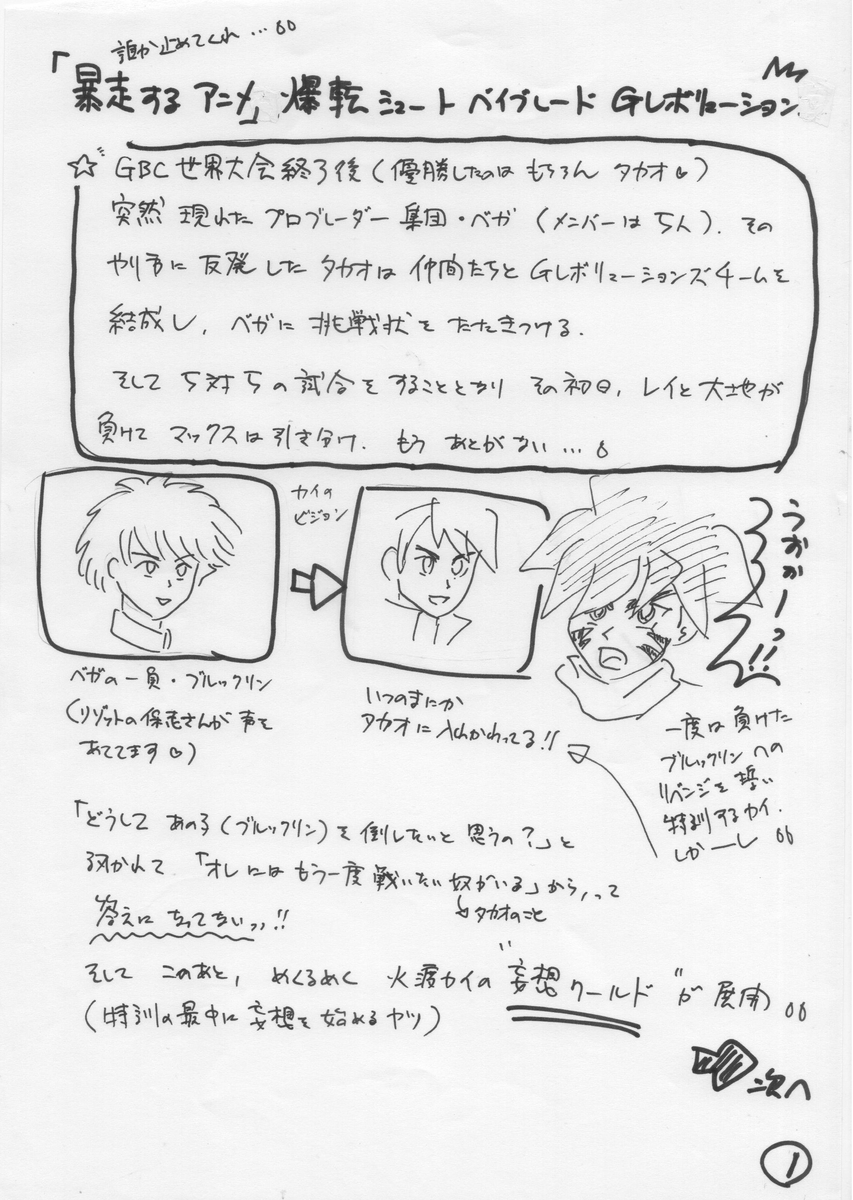 誰か止めてくれ…
「暴走するアニメ」爆転シュート ベイブレード Gレボリューション
☆ GBC世界大会終了後(優勝したのは もちろん タカオ)
突然 現れた プロブレーダー 集団・ベガ (メンバーは 5人)。その
やり方に 反発した タカオは 仲間たちと Gレボリューションズチームを
結成し、ベガに 挑戦状を たたきつける。
そして 5対5の 試合を することとなり その初日、レイと大地が
負けて マックスは 引き分け。もう あとがない…
カイの
ビジョン
うおおーっ!!
ベガの一員・ブルックリン
(リゾットの保志さんが 声を
あててます)
いつのまにか
タカオに 入れかわってる!!
一度は 負けた
ブルックリンへの
リベンジを 誓い
特訓するカイ。
しかーし
「どうして あの子(ブルックリン)を 倒したいと 思うの?」と
聞かれて 「オレには もう一度 戦いたい 奴がいる」から、って
タカオのこと
答えに なってないっ!!
そして このあと、めくるめく 火渡カイの "妄想ワールド"が 展開
(特訓の最中に 妄想を 始めるヤツ)
次へ
1